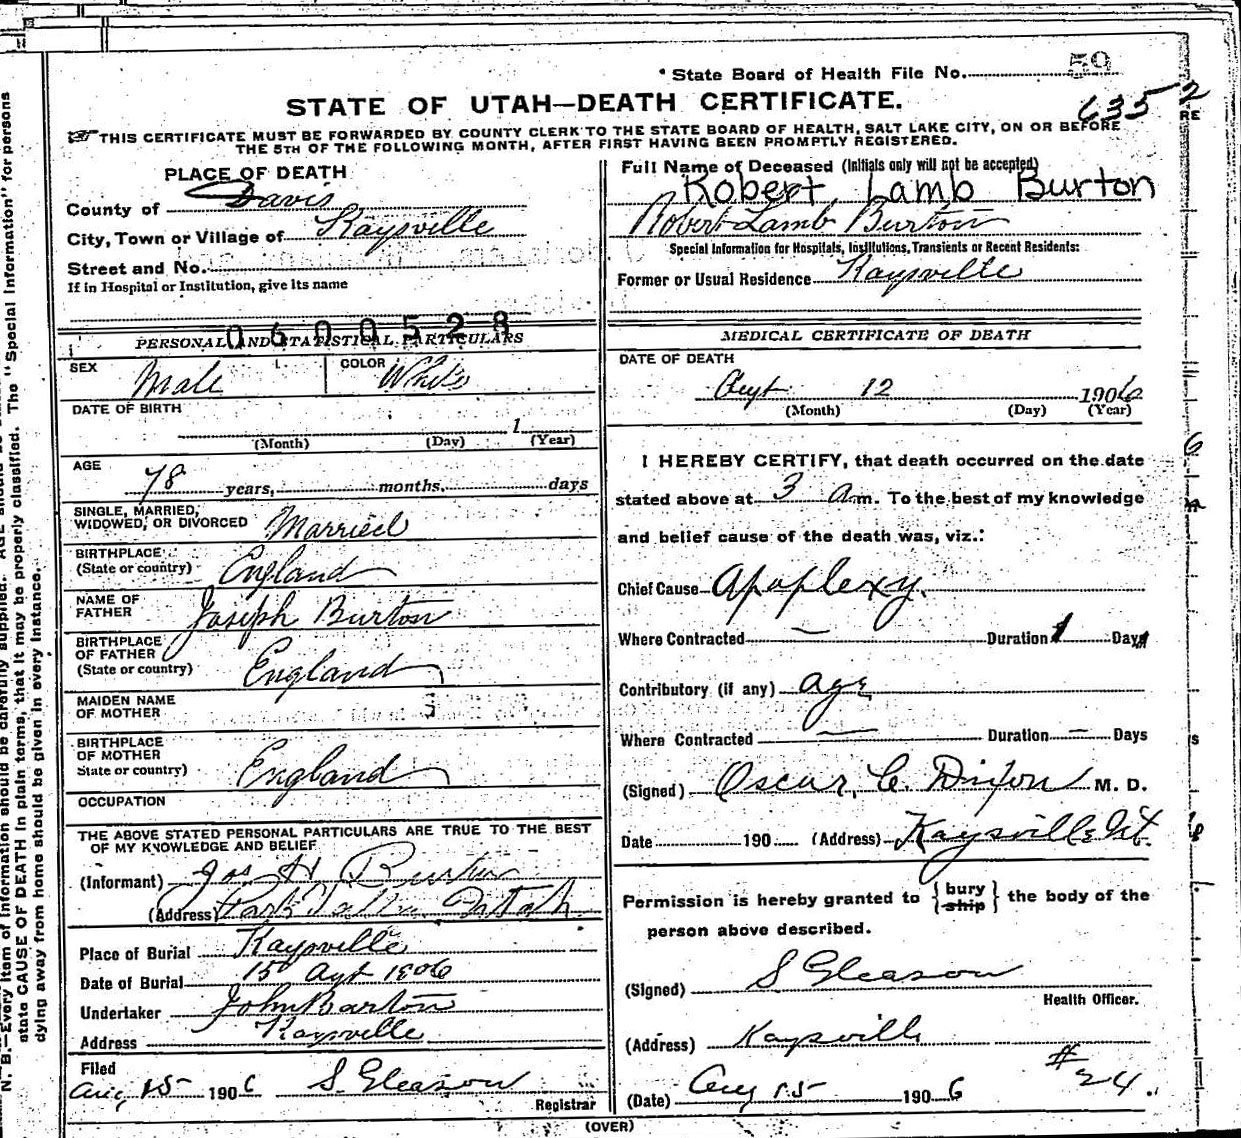 State Board of Health File No. 59
STATE OF UTAH—DEATH CERTIFICATE.
635 2
RE
THIS CERTIFICATE MUST BE FORWARDED BY COUNTY CLERK TO THE STATE BOARD OF HEALTH, SALT LAKE CITY, ON OR BEFORE
THE 5TH OF THE FOLLOWING MONTH, AFTER FIRST HAVING BEEN PROMPTLY REGISTERED.
PLACE OF DEATH
County of Davis
City, Town or Village of Kaysville
Street and No.
If in Hospital or Institution, give its name
0600528
PERSONAL AND STATISTICAL PARTICULARS
SEX Male COLOR White
DATE OF BIRTH
1
(Month) (Day) (Year)
AGE
78 years, months, days
SINGLE, MARRIED,
WIDOWED, OR DIVORCED Married
BIRTHPLACE
(State or country) England
NAME OF
FATHER Joseph Burton
BIRTHPLACE
OF FATHER
(State or country) England
MAIDEN NAME
OF MOTHER
BIRTHPLACE
OF MOTHER
State or country) England
OCCUPATION
THE ABOVE STATED PERSONAL PARTICULARS ARE TRUE TO THE BEST
OF MY KNOWLEDGE AND BELIEF
(Informant) Jos H Burton
(Address) Park Valley Utah
Place of Burial Kaysville
Date of Burial 15 Agt 1906
Undertaker John Barton
Address Kaysville
Filed
Aug 15 1906 S. Gleason
Registrar
Full Name of Deceased (Initials only will not be accepted)
Robert Lamb Burton
Robert Lamb Burton
Special Information for Hospitals, Institutions, Transients or Recent Residents:
Former or Usual Residence Kaysville
MEDICAL CERTIFICATE OF DEATH
DATE OF DEATH
Augt 12 1906
(Month) (Day) (Year)
I HEREBY CERTIFY, that death occurred on the date
stated above at 3 a.m. To the best of my knowledge
and belief cause of the death was, viz.:
Chief Cause Apoplexy.
Where Contracted — Duration 1 Days
Contributory (if any) age
Where Contracted — Duration — Days
(Signed) Oscar C. Dixon M. D.
Date 190 (Address) Kaysville Ut.
Permission is hereby granted to { bury ship } the body of the
person above described.
(Signed) S Gleason
Health Officer.
(Address) Kaysville
#24.
(Date) Aug 15 1906
(OVER)
N. B.—Every item of information should be carefully supplied. AGE should be
state CAUSE OF DEATH in plain terms, that it may be properly classified. The "Special Information" for persons
dying away from home should be given in every instance.